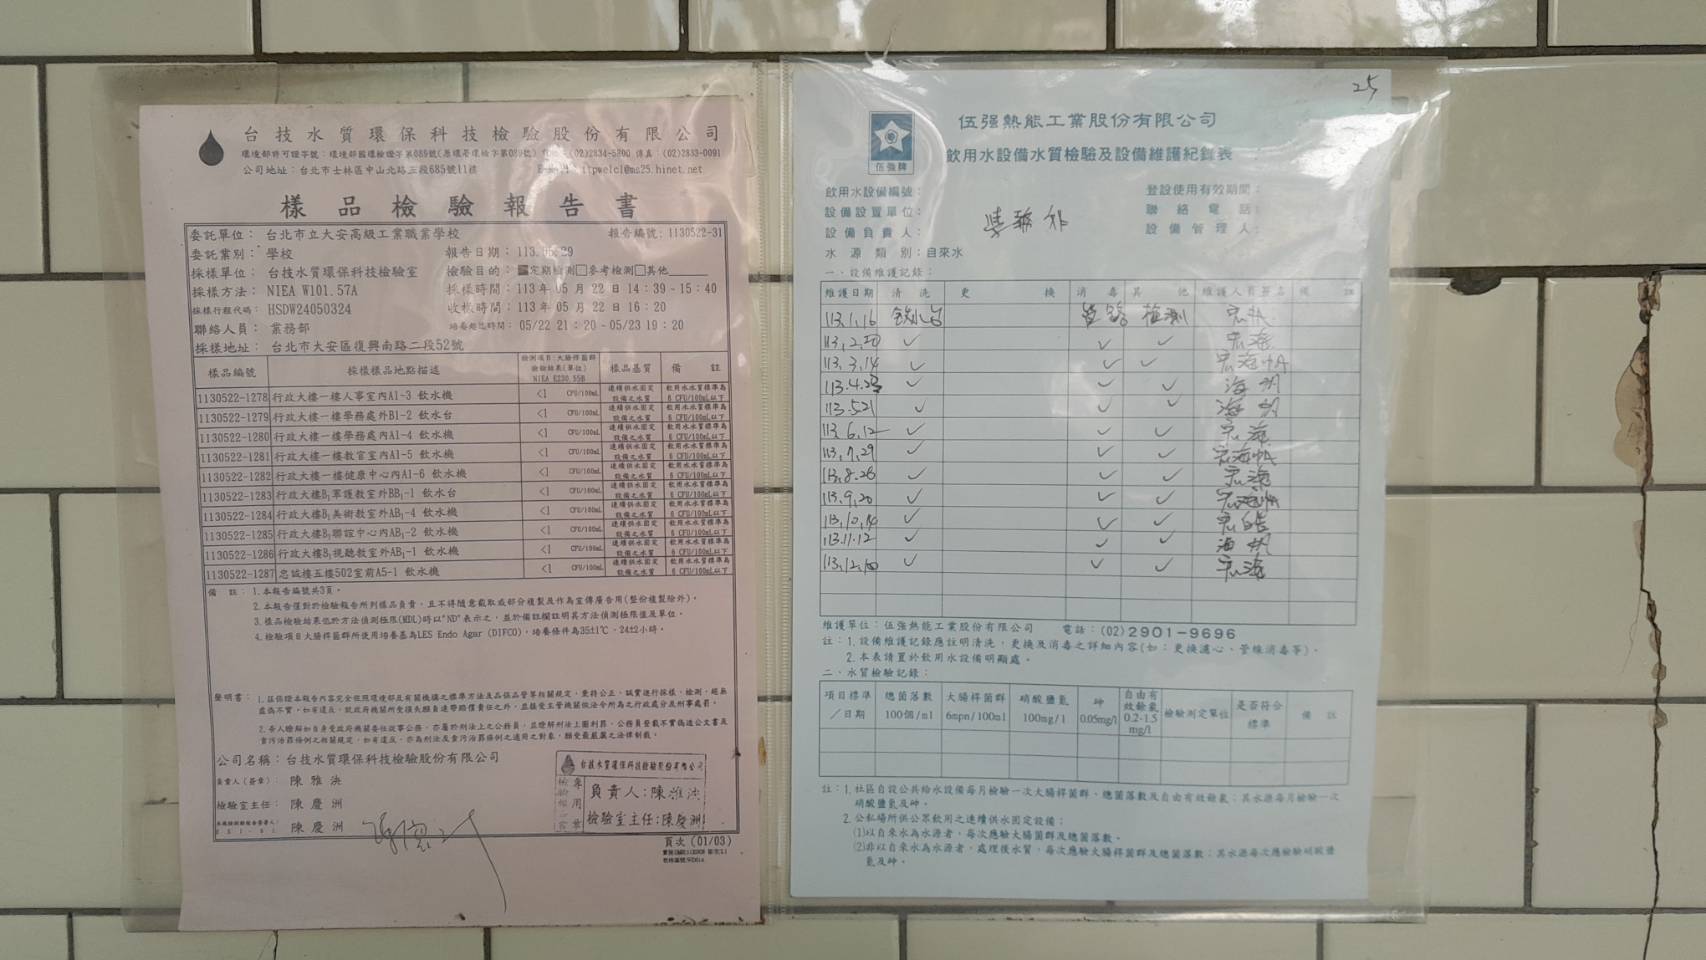 台技水質環保科技檢驗股份有限公司
公司地址：台北市士林區中山北路三段685號11樓
樣品檢驗報告書
委託單位： 台北市立大安高級工業職業學校 報告編號：1130522-31
委託業別： 學校 報告日期：113.05.29
採樣單位： 台技水質環保科技檢驗室 檢驗目的： 定期檢測 參考檢測 其他
採樣方法： NIEA W101.57A 採樣時間：113年05月22日14：39-15：40
採樣行程代碼： HSDW24050324 收樣時間：113年05月22日16：20
聯絡人員： 業務部 培養起迄時間：05/22 21：20-05/23 19：20
採樣地址： 台北市大安區復興南路二段52號
樣品編號 採樣樣品地點描述 檢測項目:大腸桿菌群 檢驗結果(單位) NIEA E230.55B 樣品基質 備註
1130522-1278 行政大樓一樓人事室內A1-3 飲水機 <1 CFU/100mL 連續供水固定設備之水質 飲用水水質標準為6 CFU/100mL以下
1130522-1279 行政大樓一樓學務處外B1-2 飲水台 <1 CFU/100mL 連續供水固定設備之水質 飲用水水質標準為6 CFU/100mL以下
1130522-1280 行政大樓一樓學務處內A1-4 飲水機 <1 CFU/100mL 連續供水固定設備之水質 飲用水水質標準為6 CFU/100mL以下
1130522-1281 行政大樓一樓教官室內A1-5 飲水機 <1 CFU/100mL 連續供水固定設備之水質 飲用水水質標準為6 CFU/100mL以下
1130522-1282 行政大樓一樓健康中心內A1-6 飲水機 <1 CFU/100mL 連續供水固定設備之水質 飲用水水質標準為6 CFU/100mL以下
1130522-1283 行政大樓B1軍護教室外BB1-1 飲水台 <1 CFU/100mL 連續供水固定設備之水質 飲用水水質標準為6 CFU/100mL以下
1130522-1284 行政大樓B1美術教室外AB1-4 飲水機 <1 CFU/100mL 連續供水固定設備之水質 飲用水水質標準為6 CFU/100mL以下
1130522-1285 行政大樓B1聯誼中心內AB1-2 飲水機 <1 CFU/100mL 連續供水固定設備之水質 飲用水水質標準為6 CFU/100mL以下
1130522-1286 行政大樓B1視聽教室外AB1-1 飲水機 <1 CFU/100mL 連續供水固定設備之水質 飲用水水質標準為6 CFU/100mL以下
1130522-1287 忠誠樓五樓502室前A5-1 飲水機 <1 CFU/100mL 連續供水固定設備之水質 飲用水水質標準為6 CFU/100mL以下
備註：1.本報告編號共3頁。
2.本報告僅對於檢驗報告所列樣品負責，且不得隨意截取或部分複製及作為宣傳廣告用(整份複製除外)。
3.樣品檢驗結果低於方法偵測極限(MDL)時以"ND"表示之，並於備註欄註明其方法偵測極限值及單位。
4.檢驗項目大腸桿菌群所使用培養基為LES Endo Agar (DIFCO)，培養條件為35±1℃，24±2小時。
公司名稱：台技水質環保科技檢驗股份有限公司
負責人(簽章)： 陳雅泱
檢驗室主任： 陳慶洲
陳慶洲
台技水質環保科技檢驗股份有限公司
負責人：陳雅泱
檢驗室主任：陳慶洲
頁次(01/03)
25
伍強牌
伍强熱能工業股份有限公司
飲用水設備水質檢驗及設備維護紀錄表
飲用水設備編號： 登設使用有效期間：
設備設置單位： 聯絡電話：
設備負責人： 設備管理人：
水源類別：自來水
一、設備維護記錄：
維護日期 清洗 更換 消毒 其他 維護人員簽名 備註
113.1.16 飲水台 管路 檢測
113.2.20 ✓ ✓ ✓
113.3.14 ✓ ✓ ✓
113.4.23 ✓ ✓ ✓
113.5.21 ✓ ✓ ✓
113.6.12 ✓ ✓ ✓
113.7.29 ✓ ✓ ✓
113.8.26 ✓ ✓ ✓
113.9.20 ✓ ✓ ✓
113.10.14 ✓ ✓ ✓
113.11.12 ✓ ✓ ✓
113.12.10 ✓ ✓ ✓
維護單位：伍强熱能工業股份有限公司 電話：(02)2901-9696
註：1.設備維護記錄應註明清洗、更換及消毒之詳細內容(如：更換濾心、管線消毒等)。
2.本表請置於飲用水設備明顯處。
二、水質檢驗記錄：
項目標準／日期 總菌落數100個/ml 大腸桿菌群6mpn/100ml 硝酸鹽氮100mg/l 砷0.05mg/l 自由有效餘氯0.2-1.5mg/l 檢驗測定單位 是否符合標準 備註
註：1.社區自設公共給水設備每月檢驗一次大腸桿菌群、總菌落數及自由有效餘氯；其水源每月檢驗一次
硝酸鹽氮及砷。
2.公私場所供公眾飲用之連續供水固定設備：
(1)以自來水為水源者，每次應驗大腸桿菌群及總菌落數。
(2)非以自來水為水源者，處理後水質，每次應驗大腸桿菌群及總菌落數；其水源每次應檢驗硝酸鹽
氮及砷。